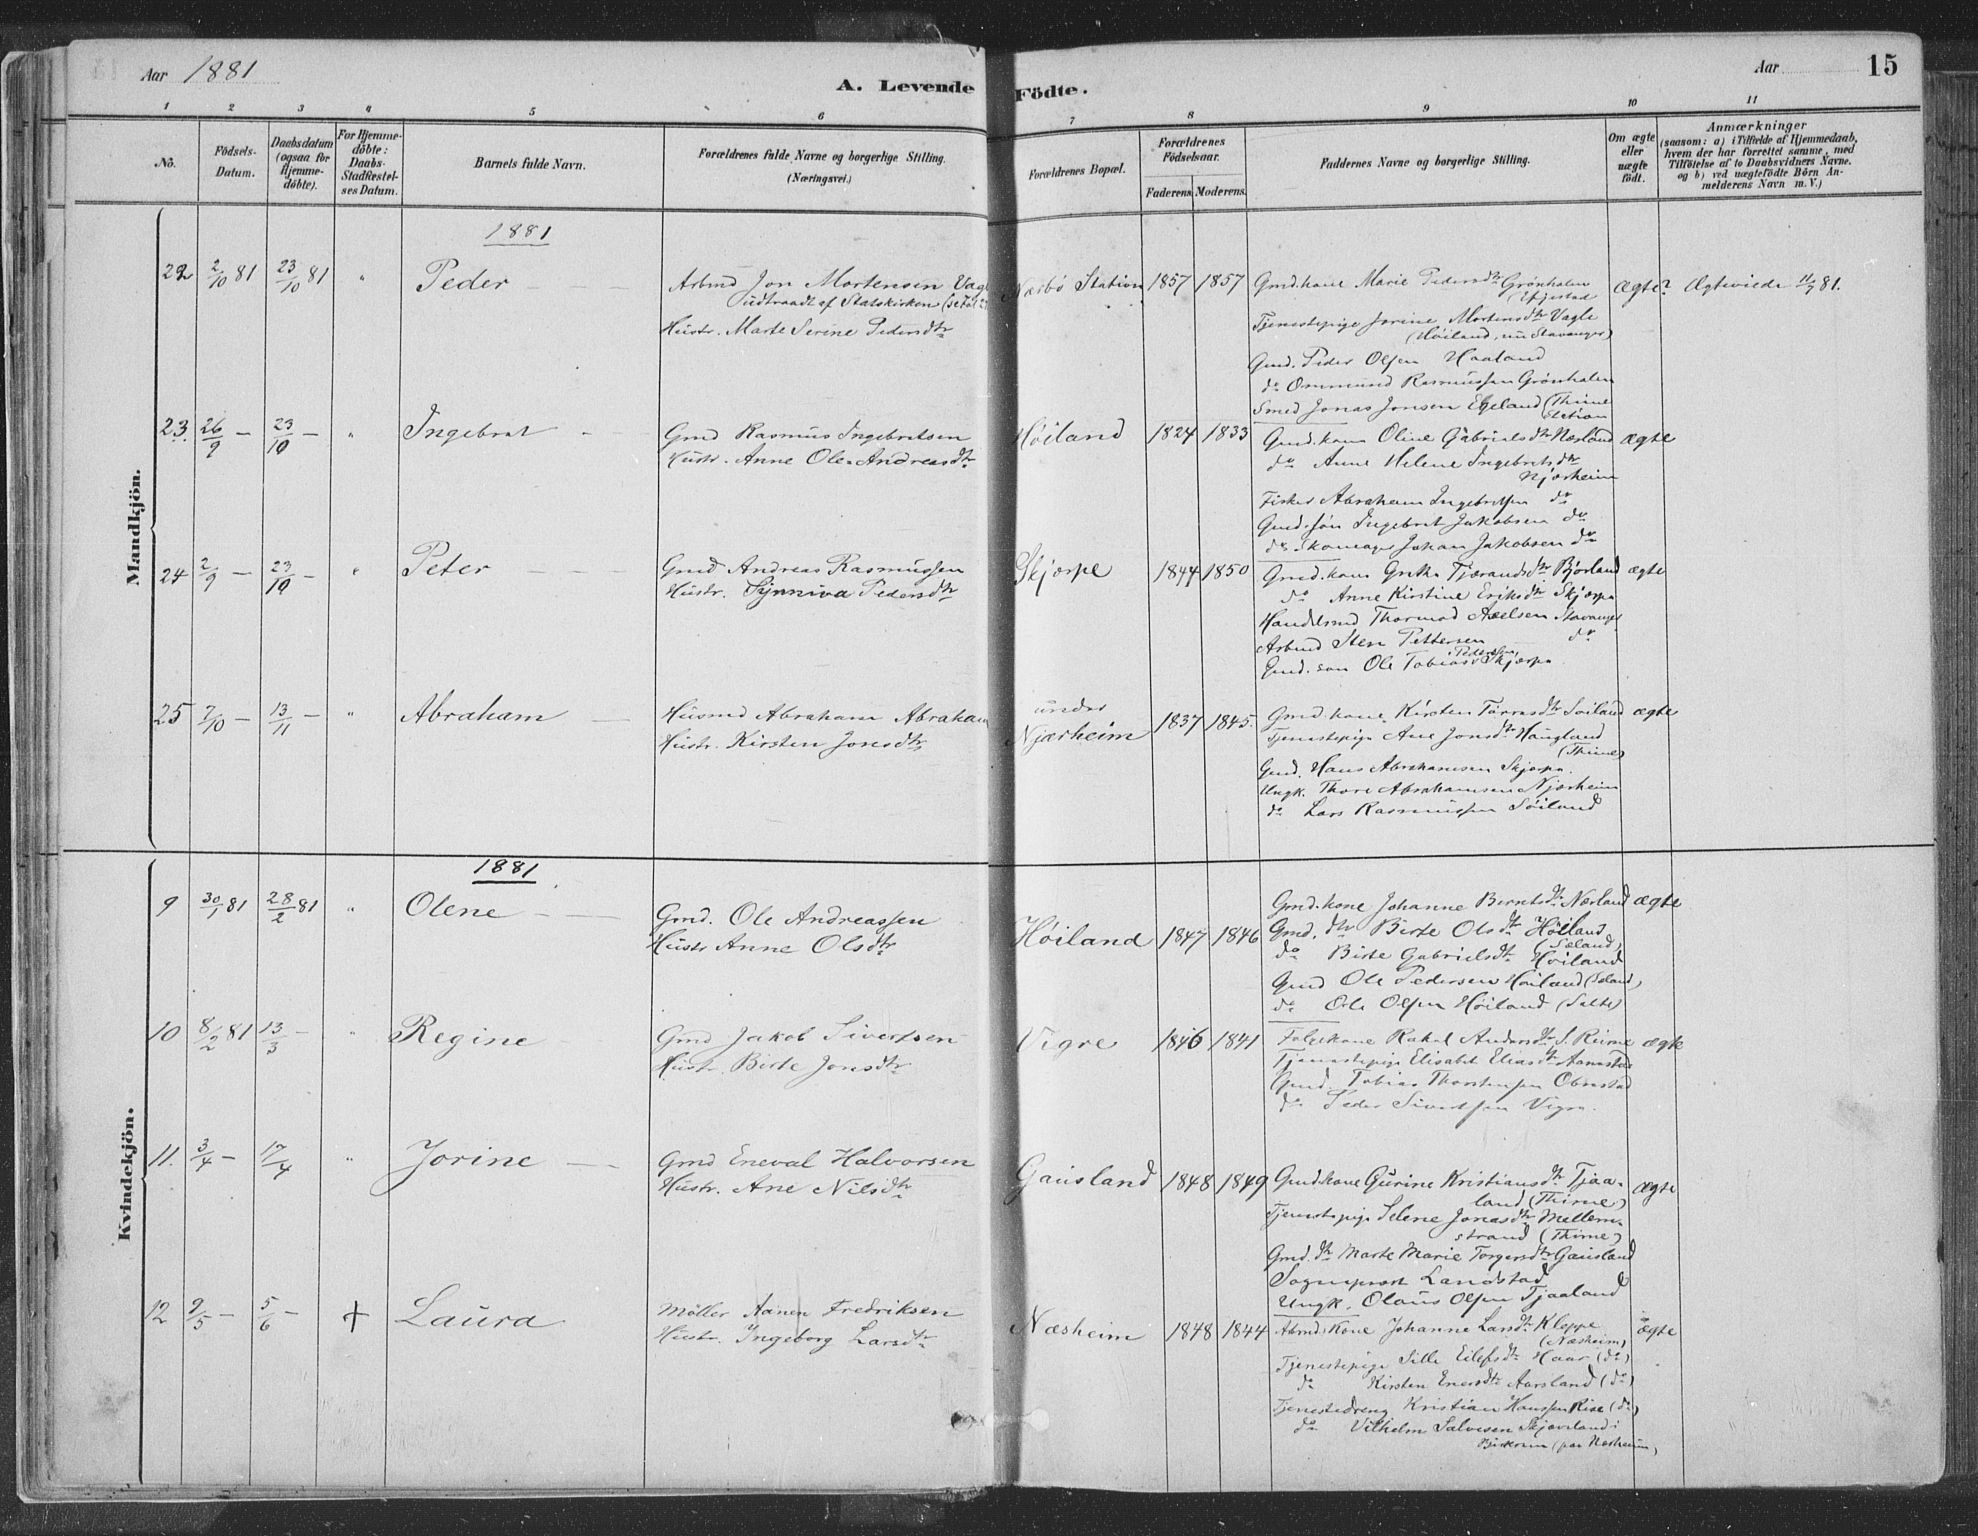 Aar 1881
A. Levende Födte.
Aar 15
1 2 3 4 5 6 7 8 9 10 11
No.
Födsels-Datum.
Daabsdatum (ogsaa for Hjemme-döbte).
For Hjemme-döbte: Daabs-Stadfestel-ses Datum.
Barnets fulde Navn.
Forældrenes fulde Navne og borgerlige Stilling.
(Næringsvei.)
Forældrenes Bopæl.
Forældrenes Födselsaar.
Faderens. Moderens.
Faddernes Navne og borgerlige Stilling.
Om ægte eller uægte födt.
Anmærkninger
(saasom: a) i Tilfælde af Hjemmedaab,
hvem der har forrettet samme, med
Tilföielse af to Daabsvidners Navne.
og b) ved uægtefödte Börn An-
melderens Navn m. V.)
Mandkjön.
1881
22 2/10 81 23/10 81 " Peder
Arbmd Jon Mortensen Vagle
udtraadt af Statskirken
Hustr. Marte Serine Pedersdtr
Nærbö Station 1857 1857
Gmd.kone Marie Pedersdtr Grönhalen
Tjenestepige Jorine Mortensdtr Vagle
(Höiland, nu Stavanger)
Gmd. Peder Olsen Haaland
do Ommund Rasmussen Grönhalen
Smed Jonas Jonsen Egeland (Thime Station
Ægte? Ægteviede 11/7 81.
23. 26/9 — 23/10 — " Ingebret
Gmd Rasmus Ingebretsen
Hustr. Anne Ole-Andreasdtr
Höiland 1824 1833
Gmd.kone Oline Gabrielsdtr Nærland
do Anne Helene Ingebretsdtr
Njærheim
Fisker Abraham Ingebretsen do
Gmd.sön Ingebret Jakobsen do
do Skomager Johan Jakobsen do
ægte
24 2/9 — 23/10 — " Peter
Gmd Andreas Rasmussen
Hustr. Synniva Pedersdtr
Skjærpe 1844 1850
Gmd.kone Grethe Tjærandsdtr Bjorland
do Anne Kirstine Eriksdtr Skjærpe
Handelsmd Thormod Axelsen Stavanger
Arbmd Sten Pettersen do
Gmd.sön Ole Tobias Pedersen Skjærpe
ægte
25 7/10 — 13/11 — " Abraham
Husmd Abraham Abraham
Hustr. Kirsten Jonsdtr
under
Njærheim 1837 1845.
Gmd.kone Kirsten Törresdtr Söiland
Tjenestepige Ane Jonsdtr Haugland
(Thime)
Gmd. Hans Abrahamsen Skjærpe.
Ungk. Thore Abrahamsen Njærheim
do Lars Rasmussen Söiland
ægte
Kvindekjön.
1881
9 30/1 81 28/2 81 " Olene
Gmd. Ole Andreassen
Hustr Anne Olsdtr
Höiland 1847 1846
Gmd.kone Johanne Berntsdtr Nærland
Gmd. dtr Birte Olsdtr Höiland
(Sæland)
do Birte Gabrielsdtr Höiland
Gmd Ole Pedersen Höiland (Sæland)
do Ole Olsen Höiland (Salte)
ægte
10 8/2 81 13/3 — " Regine
Gmd Jakob Sivertsen
Hustr. Birte Jonsdtr
Vigre 1846 1841
Rakel Andersdtr S. Reime
Tjenestepige Elisabet Eliasdtr Aanestad
Gmd. Tobias Thorstensen Obrestad
do Peder Sivertsen Vigre.
ægte
11. 3/4 — 17/4 " Jorine
Gmd Eneval Halvorsen
Hustr. Ane Nilsdtr
Gausland 1848 1849
Gmd.kone Gurine Kristiansdtr Tjaa-
land (Thime)
Tjenestepige Selene Jonasdtr Mellem-
strand (Thime)
Gmd.dtr Marte Marie Torgersdtr Gausland
Sogneprest Landstad
Ungk. Olaus Olsen Tjaaland
ægte
12 9/5 — 5/6 — + Laura
Möller Aanen Fredriksen
Hustr. Ingeborg Larsdtr
Næsheim 1848 1844
Abmd.kone Johanne Larsdtr Kleppe
(Næsheim)
Tjenestepige Sille Eilefsdtr Haar (do)
do Kirsten Enersdtr Aarsland (do)
Tjenestedreng Kristian Hanssen Rise (do)
do Vilhelm Salvesen Skjæveland i
Birkrem (paa Næsheim)
ægte